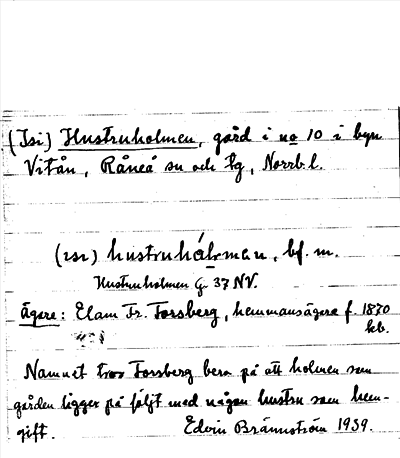 (Isi) Hustruholmen, gård i no 10 i byn
Vitån, Råneå sn och tg, Norrb. l.
hustruhålmən, bf. m.
Hustruholmen G. 37 NV.
Ägare: Elam Fr. Forsberg, hemmansägare f. 1870
Namnet tror Forsberg bero på att holmen som
gården ligger på följt med någon hustru som hem-
gift. Edvin Brännström 1939.